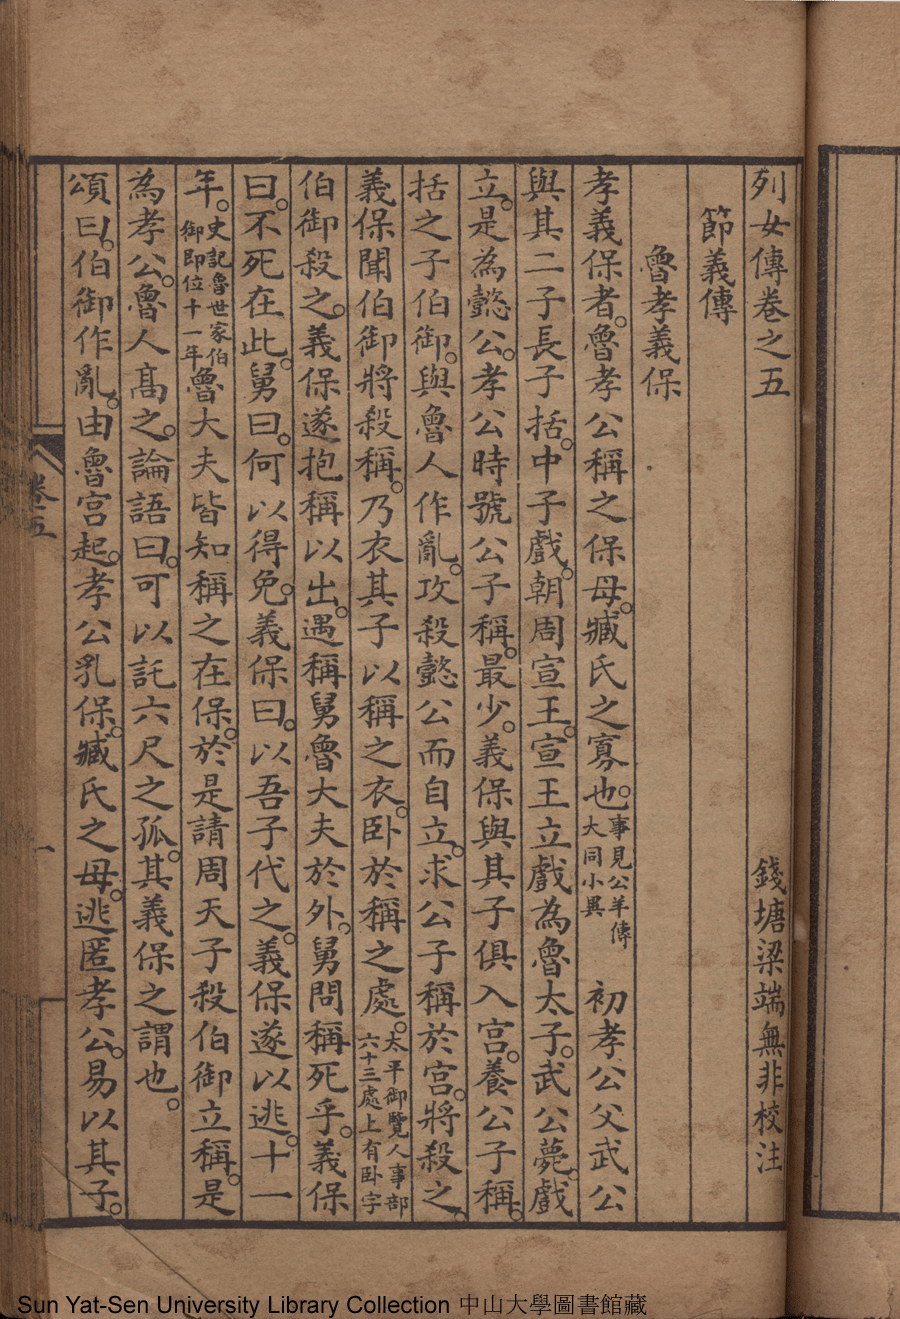 列女傳卷之五　錢塘梁端無非校注
節義傳
魯孝義保
孝義保者。魯孝公稱之保母。臧氏之寡也。事見公羊傳大同小異　初孝公父武公
與其二子長子括。中子戲。朝周宣王。宣王立戲為魯太子。武公薨。戲
立。是為懿公。孝公時號公子稱。最少。義保與其子俱入宮。養公子稱。
括之子伯御。與魯人作亂。攻殺懿公而自立。求公子稱於宮。將殺之。
義保聞伯御將殺稱。乃衣其子以稱之衣。卧於稱之處。太平御覽人事部六十三處上有卧字
伯御殺之。義保遂抱稱以出。遇稱舅魯大夫於外。舅問稱死乎。義保
曰。不死在此。舅曰。何以得免。義保曰。以吾子代之。義保遂以逃。十一
年。史記魯世家伯御即位十一年魯大夫皆知稱之在保。於是請周天子殺伯御立稱。是
為孝公。魯人高之。論語曰。可以託六尺之孤。其義保之謂也。
頌曰。伯御作亂。由魯宮起。孝公乳保。臧氏之母。逃匿孝公。易以其子。
卷五
一
Sun Yat-Sen University Library Collection 中山大學圖書館藏